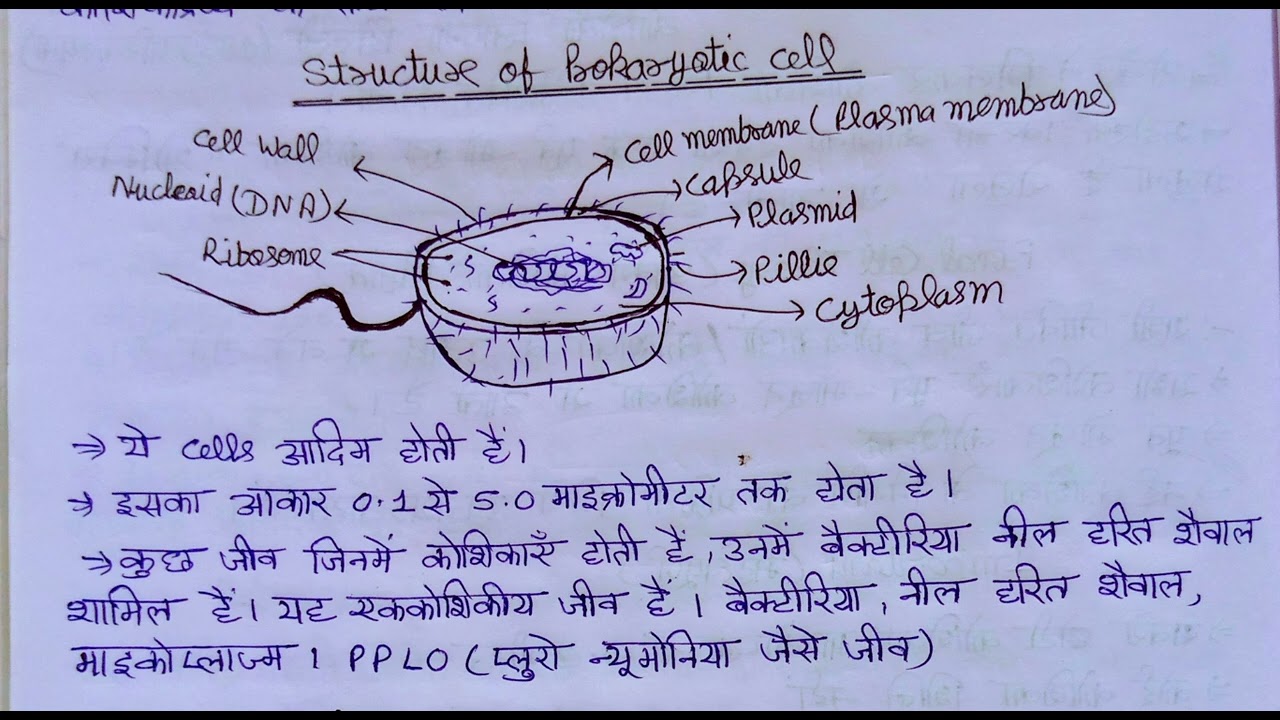 Structure of Prokaryotic cell
Cell Wall
Cell membrane (Plasma membrane)
Nucleoid (DNA)
Capsule
Plasmid
Ribosome
Pillie
Cytoplasm
⇒ ये cells आदिम होती हैं।
→ इसका आकार 0.1 से 5.0 माइक्रोमीटर तक होता है।
→ कुछ जीव जिनमें कोशिकाएँ होती हैं, उनमें बैक्टीरिया नील हरित शैवाल
शामिल हैं। यह एककोशिकीय जीव है। बैक्टीरिया, नील हरित शैवाल,
माइकोप्लाज्म। PPLO (प्लुरो न्यूमोनिया जैसे जीव)